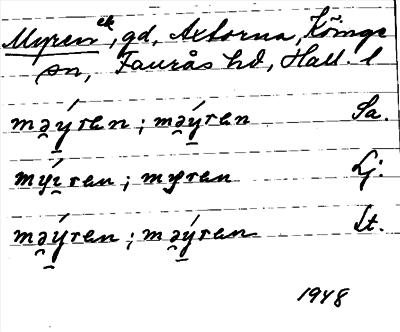 Myren ek, gd, Axtorna, Köinge
sn, Faurås hd, Hall. l
mə̯ý̱ren ; mə̯ý̱ren Sa.
myí̯ren ; myren Lj.
mə̯ý̱ren ; mə̯ý̱ren St.
1948